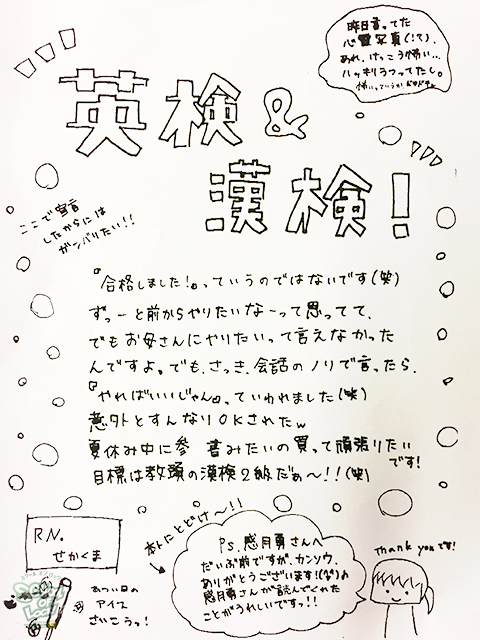 昨日言ってた
心霊写真(!?)、
あれ、けっこう怖い…
ハッキリうつってたし。
英検&
漢検!
ここで宣言
したからには
ガンバりたい!!
『合格しました!』っていうのではないです(笑)
ずっーと前からやりたいな~って思ってて、
でもお母さんにやりたいって言えなかった
んですよ。でも、さっき、会話のノリで言ったら、
『やればいいじゃん』っていわれました(笑)
意外とすんなりOKされたw
夏休み中に参 書みたいの買って頑張りたい
です!
目標は教頭の漢検2級だぁ~!!(笑)
R.N.
せかくま
あつい日の
アイス
さいこうっ!
本人にとどけ~!!
Ps.感月勇さんへ
だいぶ前ですが、カンソウ、
ありがとうございます!(^^)
感月勇さんが読んでくれた
ことがうれしいですっ!!
thank youです!